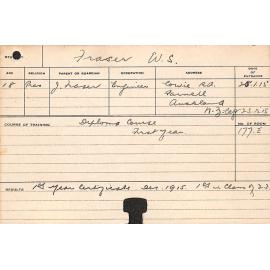 Fraser W.S.
AGE RELIGION PARENT OR GUARDIAN OCCUPATION ADDRESS DATE OF ENTRANCE
18 Pres J. Fraser Engineer Cowie Rd. 25.1.15
Parnell
Auckland
N.Z. left 23.2.18
COURSE OF TRAINING Diploma Course NO. OF ROOM
First Year 177.E
RESULTS 1st Year Certificate Dec. 1915 1st in Class of 23